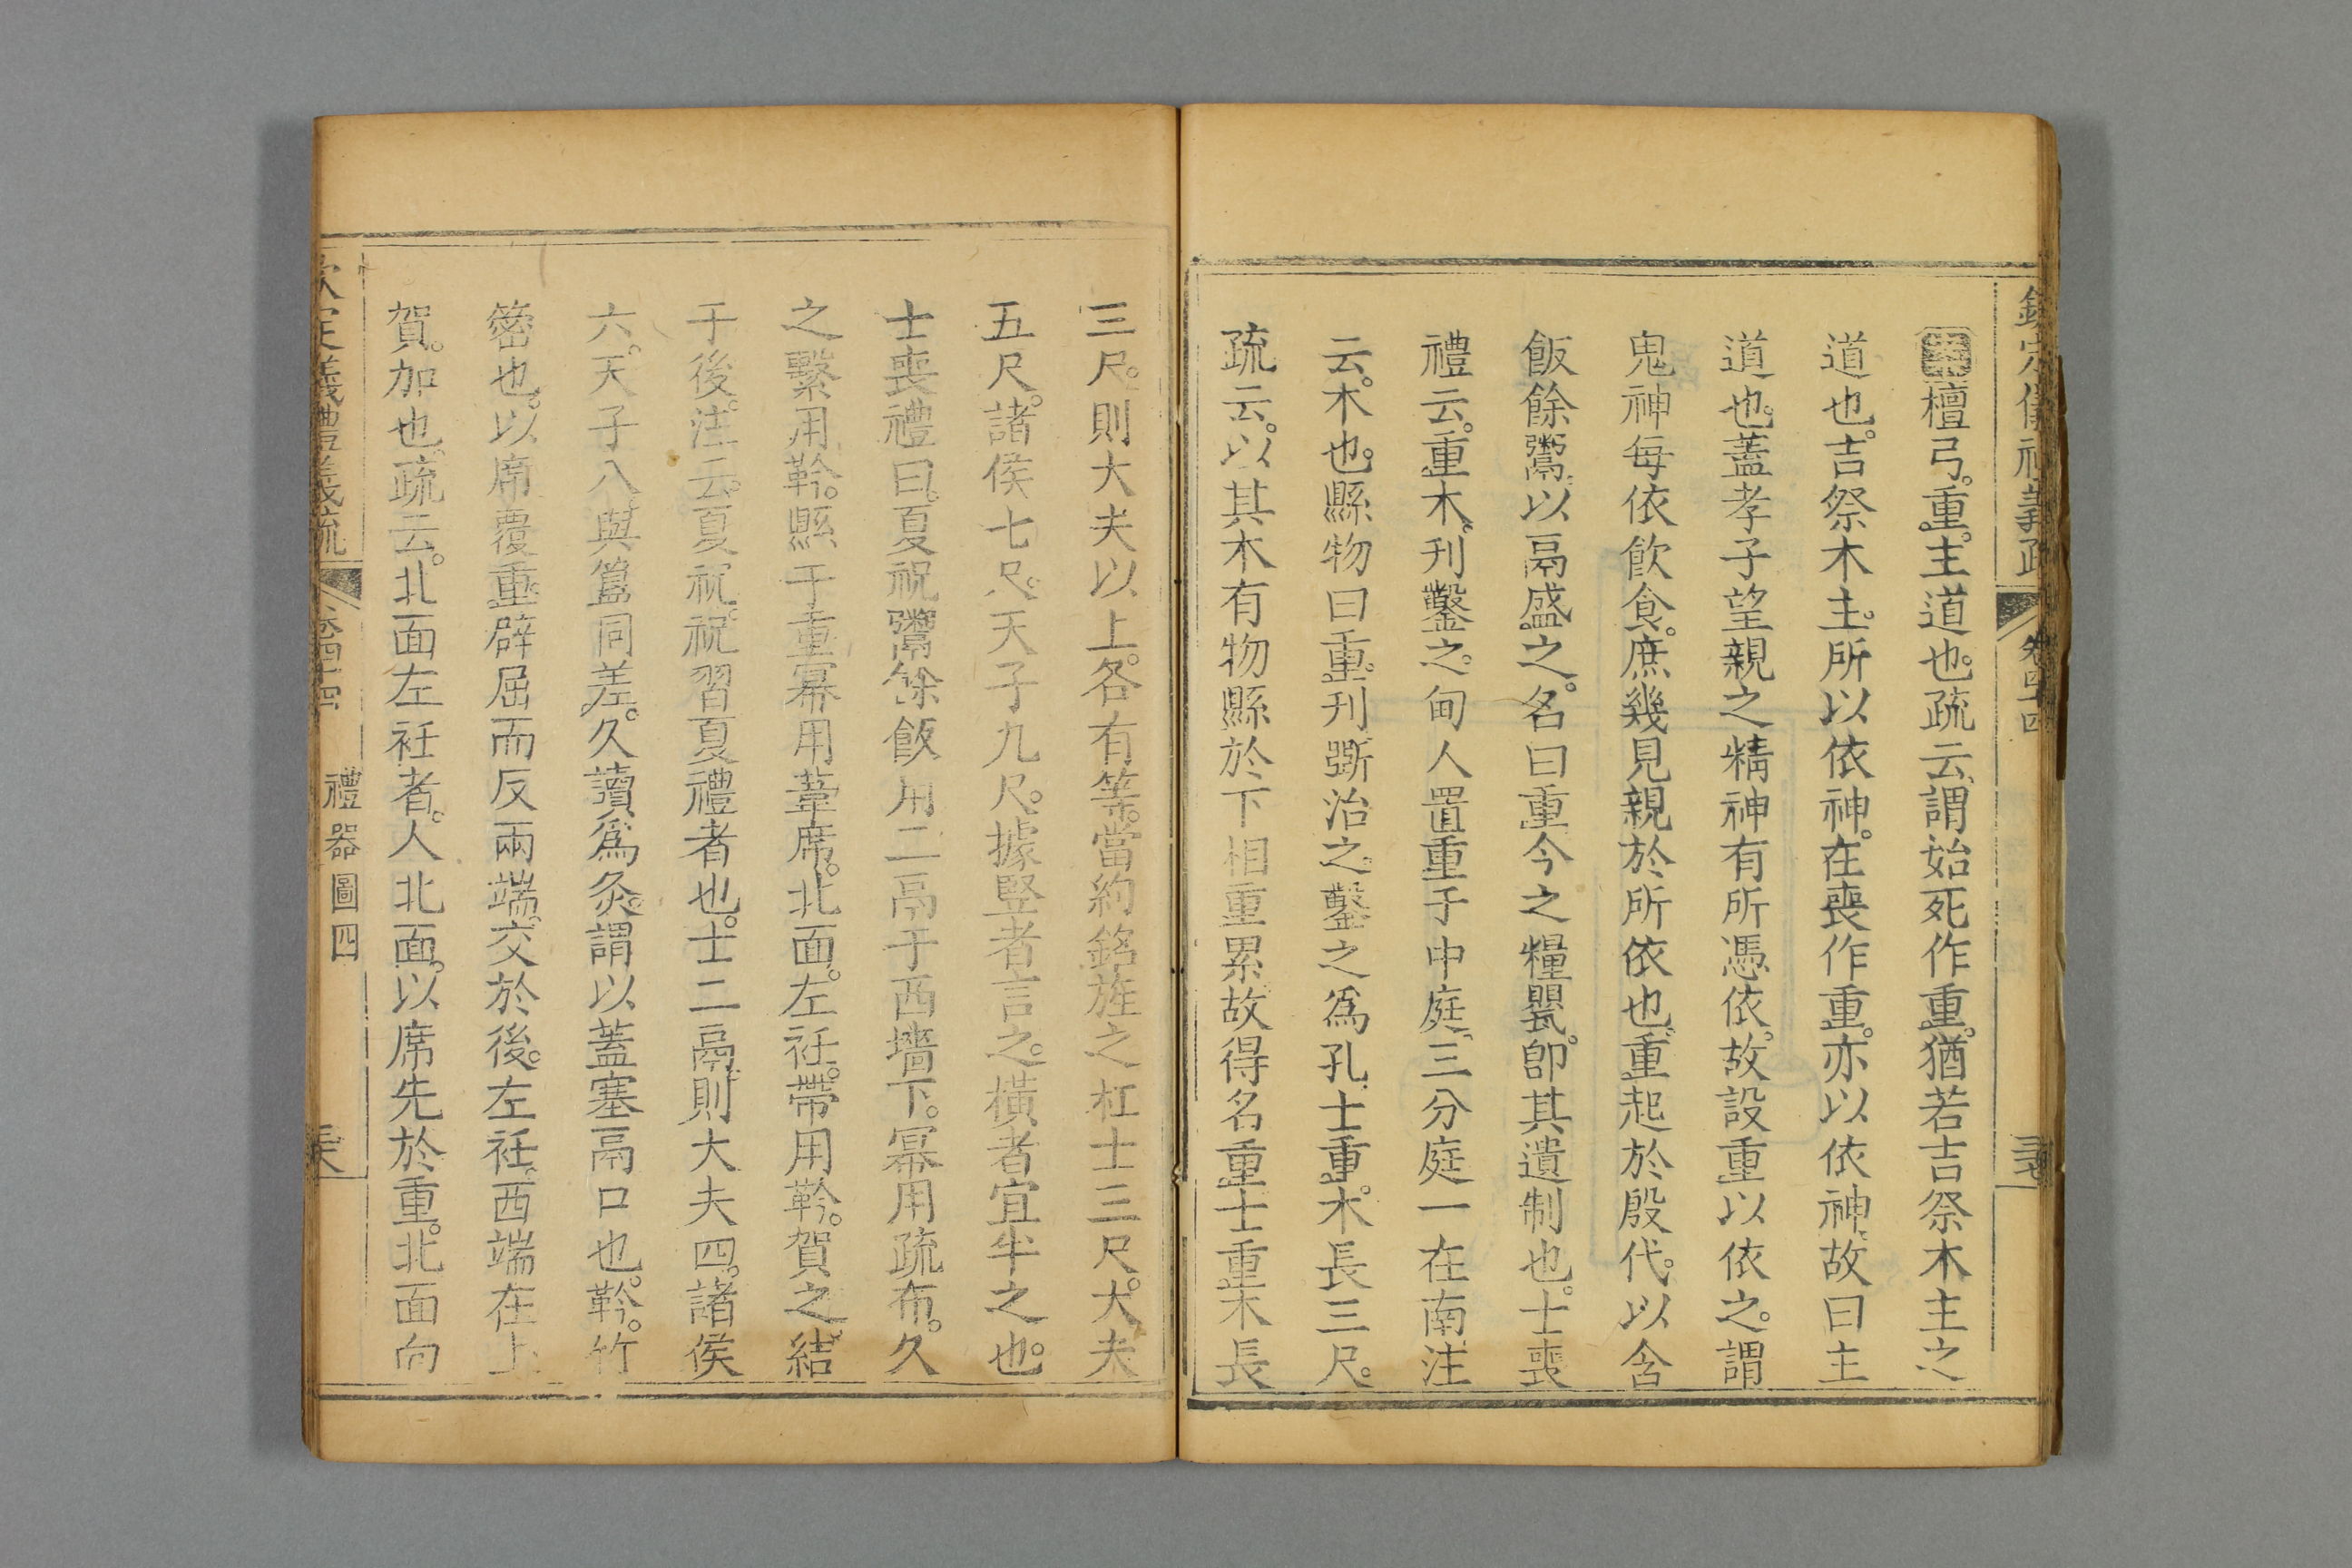 欽定儀禮義疏 卷四十四 三十七
檀弓。重。主道也。疏云。謂始死作重。猶若吉祭木主之
道也。吉祭木主。所以依神。在喪作重。亦以依神。故曰主
道也。蓋孝子望親之精神有所憑依。故設重以依之。謂
鬼神每依飮食。庶幾見親於所依也。重起於殷代。以含
飯餘鬻。以鬲盛之。名曰重今之糧甖。卽其遺制也。士喪
禮云。重木。刋鑿之。甸人置重于中庭。三分庭一在南注
云。木也。縣物曰重。刋斲治之。鑿之爲孔。士重。木長三尺。
疏云。以其木有物縣於下相重累故得名重士重木長
三尺。則大夫以上。各有等。當約銘旌之杠士三尺。大夫
五尺。諸侯七尺。天子九尺。據豎者言之。橫者宜半之也。
士喪禮曰。夏祝鬻餘飯用二鬲于西墻下。冪用疏布。久
之繫用靲。縣于重冪用葦席。北面。左衽。帶用靲。賀之結
于後。注云。夏祝。祝習夏禮者也。士二鬲。則大夫四。諸侯
六。天子八與簋同差。久讀爲灸。謂以蓋塞鬲口也。靲。竹
䈼也。以席覆重辟屈而反兩端。交於後。左衽。西端在上
賀。加也。疏云。北面左衽者。人北面。以席先於重。北面向
欽定儀禮義疏 卷四十四 禮器圖四 三十八